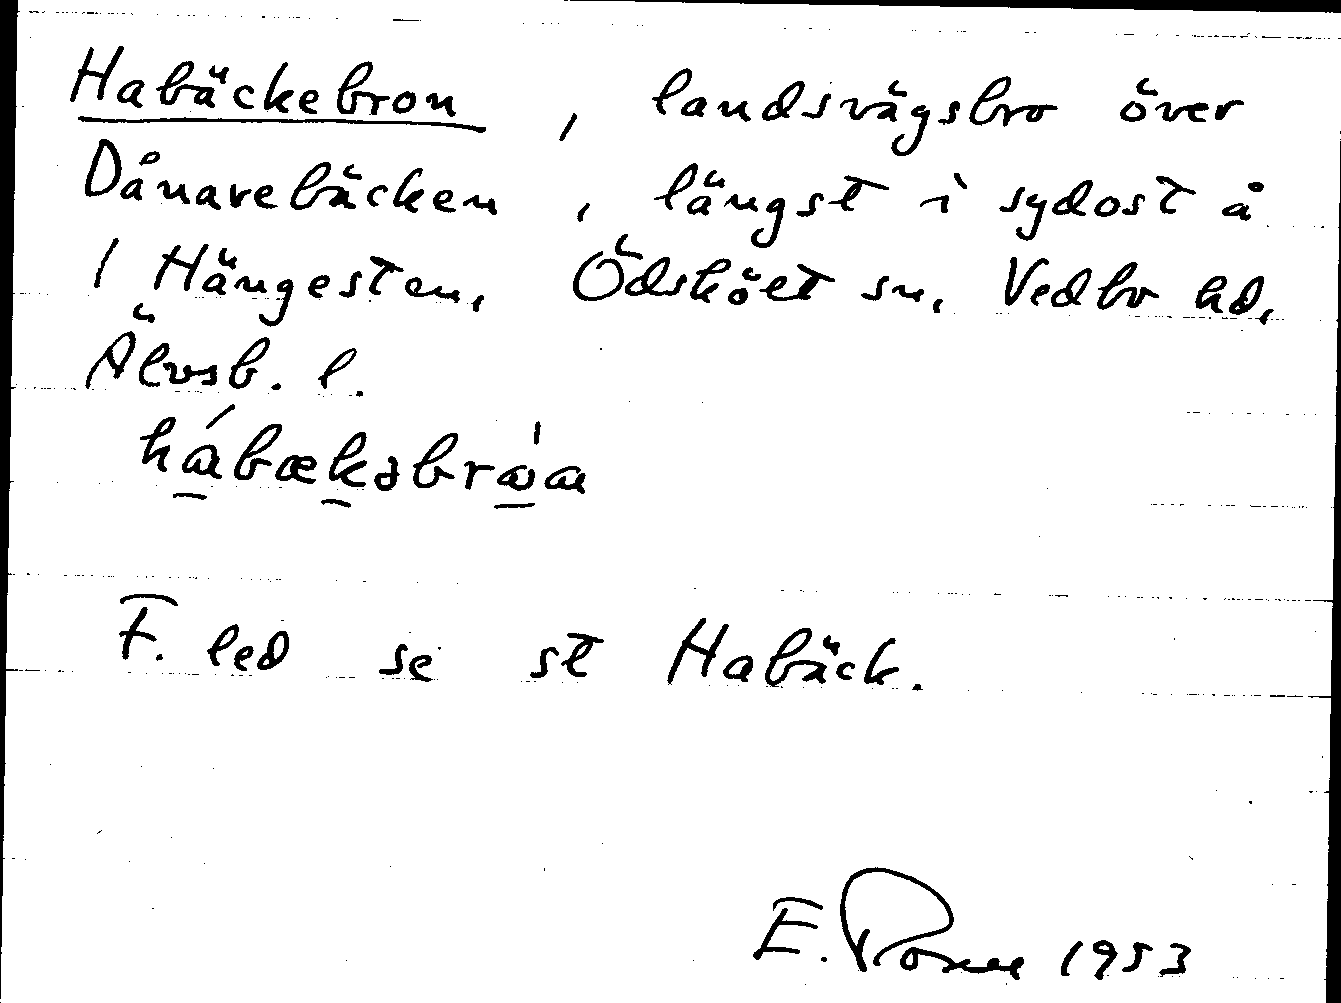 Habäckebron, landsvägsbro över
Dånarebäcken, längst i sydost å
1 Hängesten, Ödsköłt sn, Vedbo hd,
Älvsb. l.
F. led se st Habäck.
E. 1953